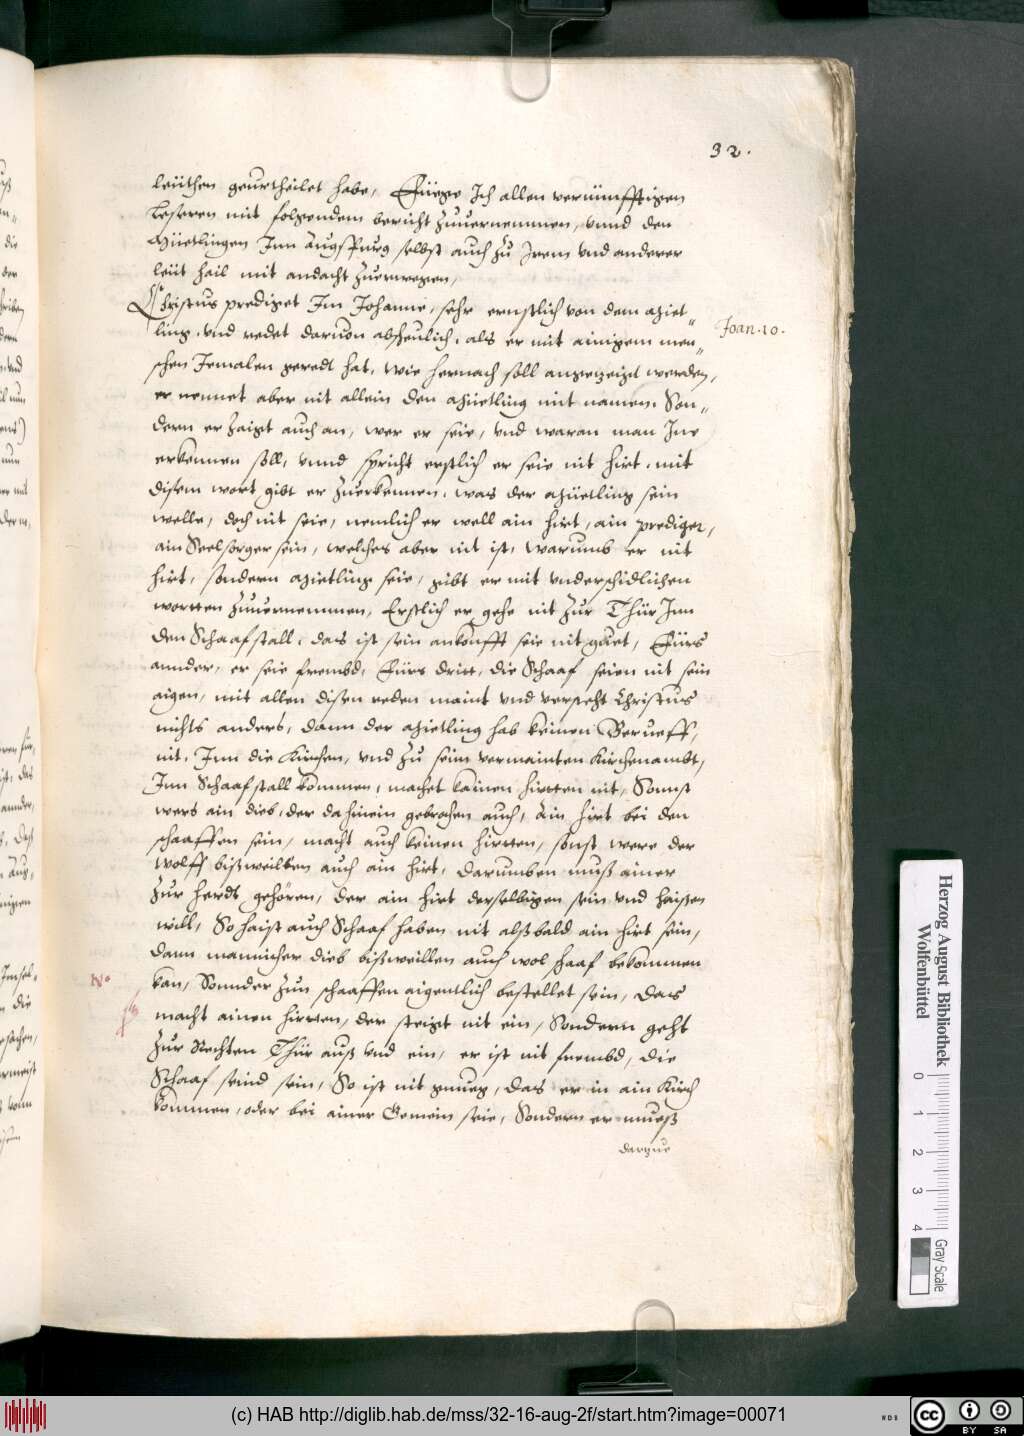 32.
leüthen geurtheilet habe, Füege Ich allen vernünfftigen
lesseren mit folgendem bericht zuuernemmen, vnnd den
Müetlingen Inn Augspurg selbst auch zu Irem vnd anderer
leüt hail mit andacht zuerwegen,
Christus prediget Im Johanne, sehr ernstlich von dem Miet„
ling, vnd redet daruon abscheulich, als er mit ainigem men„
schen Jemalen geredt hat, wie hernach soll angezeigt werden,
er nennet aber nit allein den Müetling mit namen, Son„
dern er zaigt auch an, wer er seie, vnd waran man Ine
erkennen soll, vnnd spricht erstlich er seie nit hirt, mit
disem wort gibt er zuerkennen, was der Müetling sein
welle, doch nit seie, nemlich er well ain hirt, ain prediger,
ain Seelsorger sein, welches aber nit ist, warumb er nit
hirt, sondern Mietling seie, gibt er mit vnderschidlichen
wortten zuuernemmen, Erstlich er gehe nit zur Thür Inn
den Schaafstall, das ist sein ankunfft seie nit guet, Fürs
annder, er seie frembd, Fürs dritt, die Schaaf seien nit sein
aigen, mit allen disen reden maint vnd versteht Christus
nichts anders, dann der Mietling hab keinen Berueff,
nit, Inn die Kirchen, vnd zu seim vermainten Kirchenambt,
Inn Schaafstall kommen, machet kainen hirtten nit, Sonnst
wers ain dieb, der dahinein gebrochen auch, ain hirt bei den
schaaffen sein, macht auch keinen hirtten, sonst were der
wolff bißweilken auch ain hirt, darumben muß ainer
zur herdt gehören, der ain hirt derselbigen sein vnd haissen
will, So haist auch Schaaf haben nit alßbald ain hirt sein,
dann mannicher dieb bißweillen auch wol schaaf bekommen
kan, Sonnder zun schaaffen aigentlich bestellet sein, das
macht ainen hirtten, der steigt nit ein, Sondern geht
zur Rechten Thür auß vnd ein, er ist nit frembd, die
Schaaf seind sein, So ist nit gnueg, das er in ain Kirch
kommen, oder bei ainer Gemein seie, Sondern er mueß
darzue
Joan. 10.
N.
Herzog August Bibliothek
Wolfenbüttel
0 1 2 3 4
Gray Scale
(c) HAB http://diglib.hab.de/mss/32-16-aug-2f/start.htm?image=00071
WDB
cc BY SA